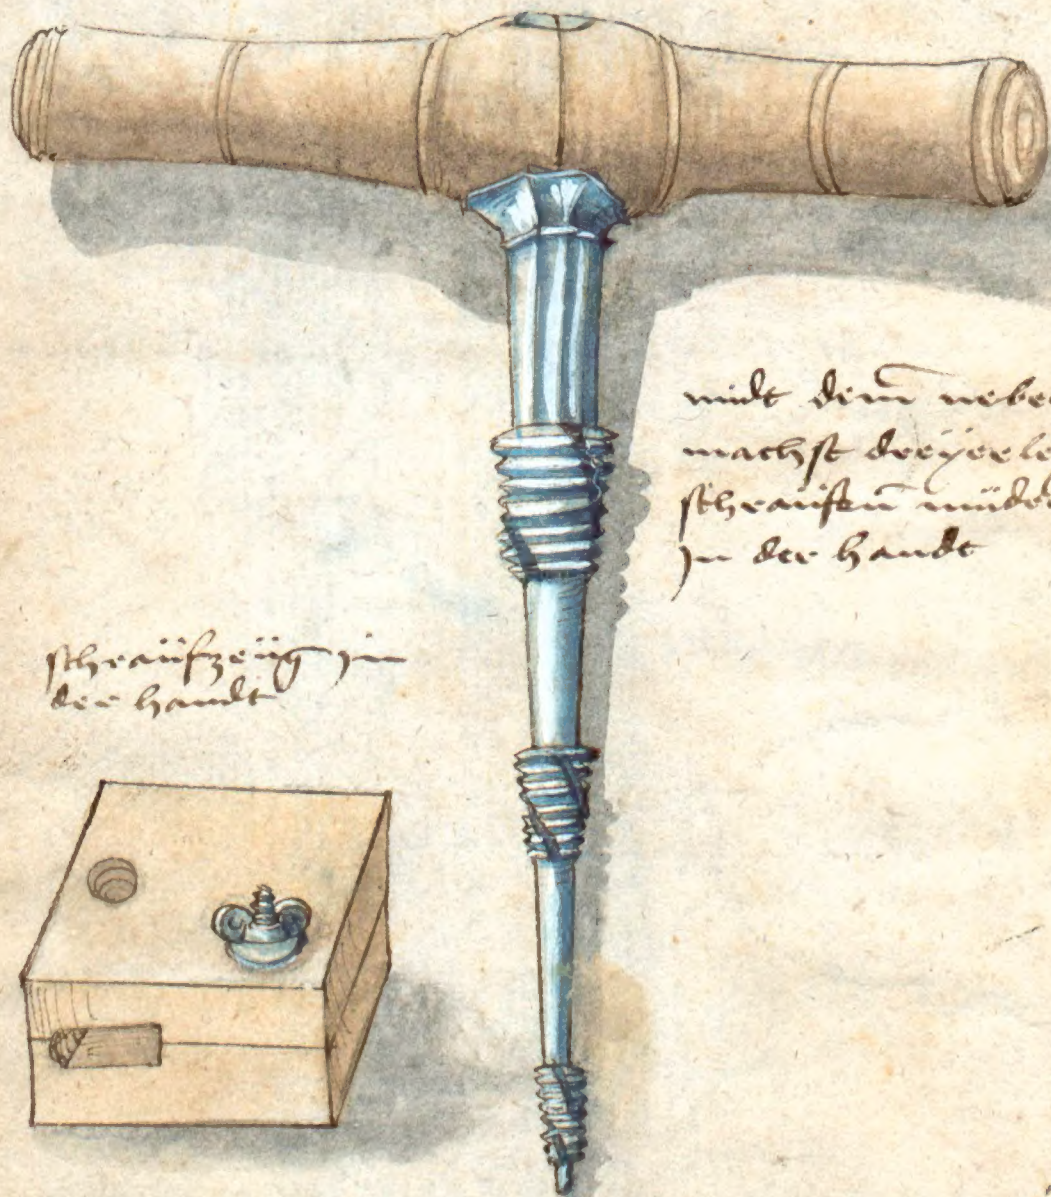 midt dem̄ nebe
machst dreÿerle
schraüfen̄ müder
jn der handt
schraüfzeüg jn
der handt